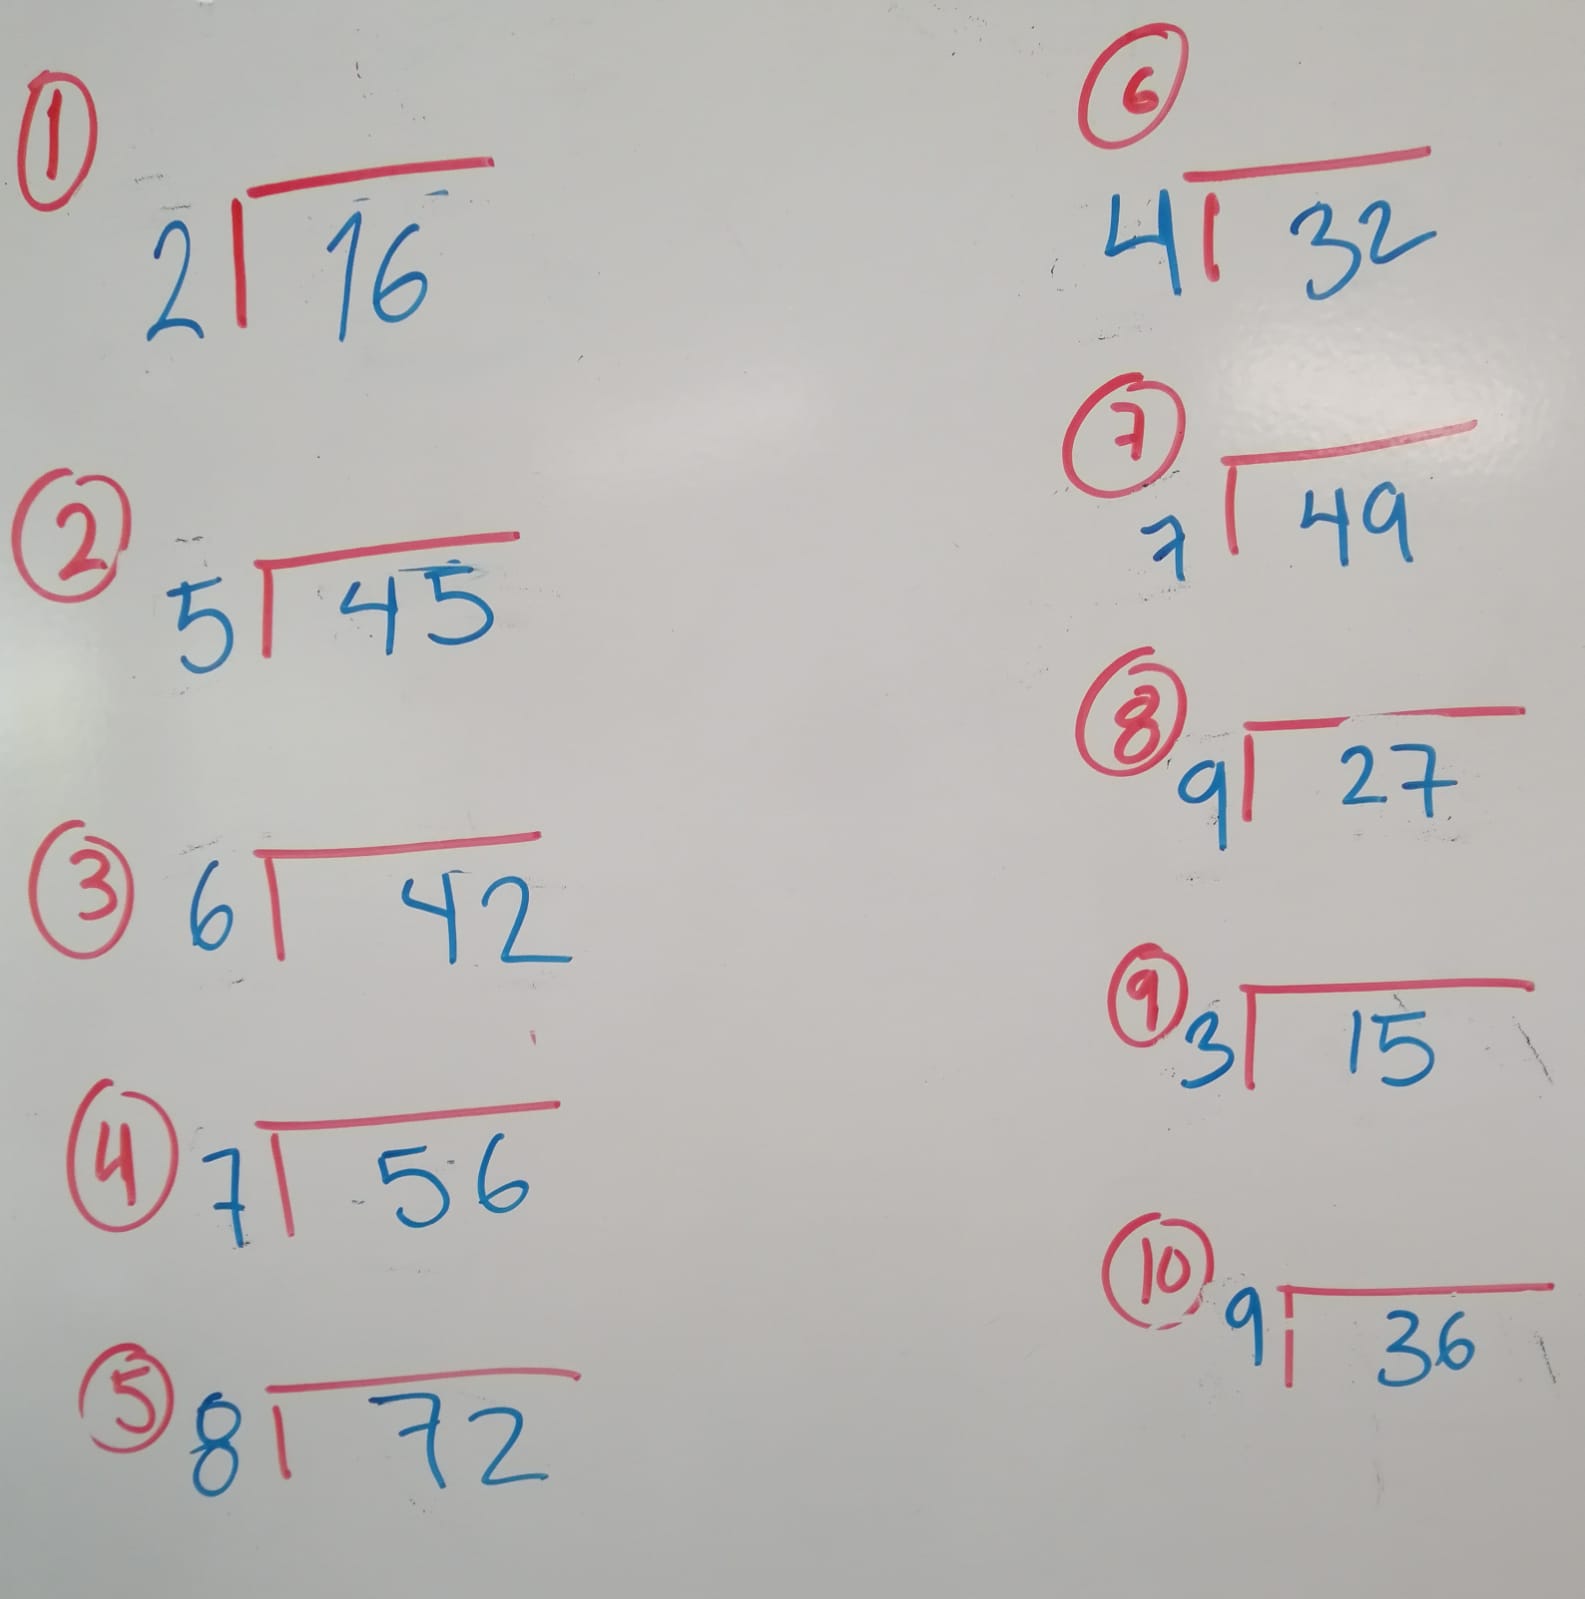 ①
2 16
②
5 45
③ 6 42
④ 7 56
⑤ 8 72
⑥
4 32
⑦
7 49
⑧ 9 27
⑨ 3 15
⑩ 9 36